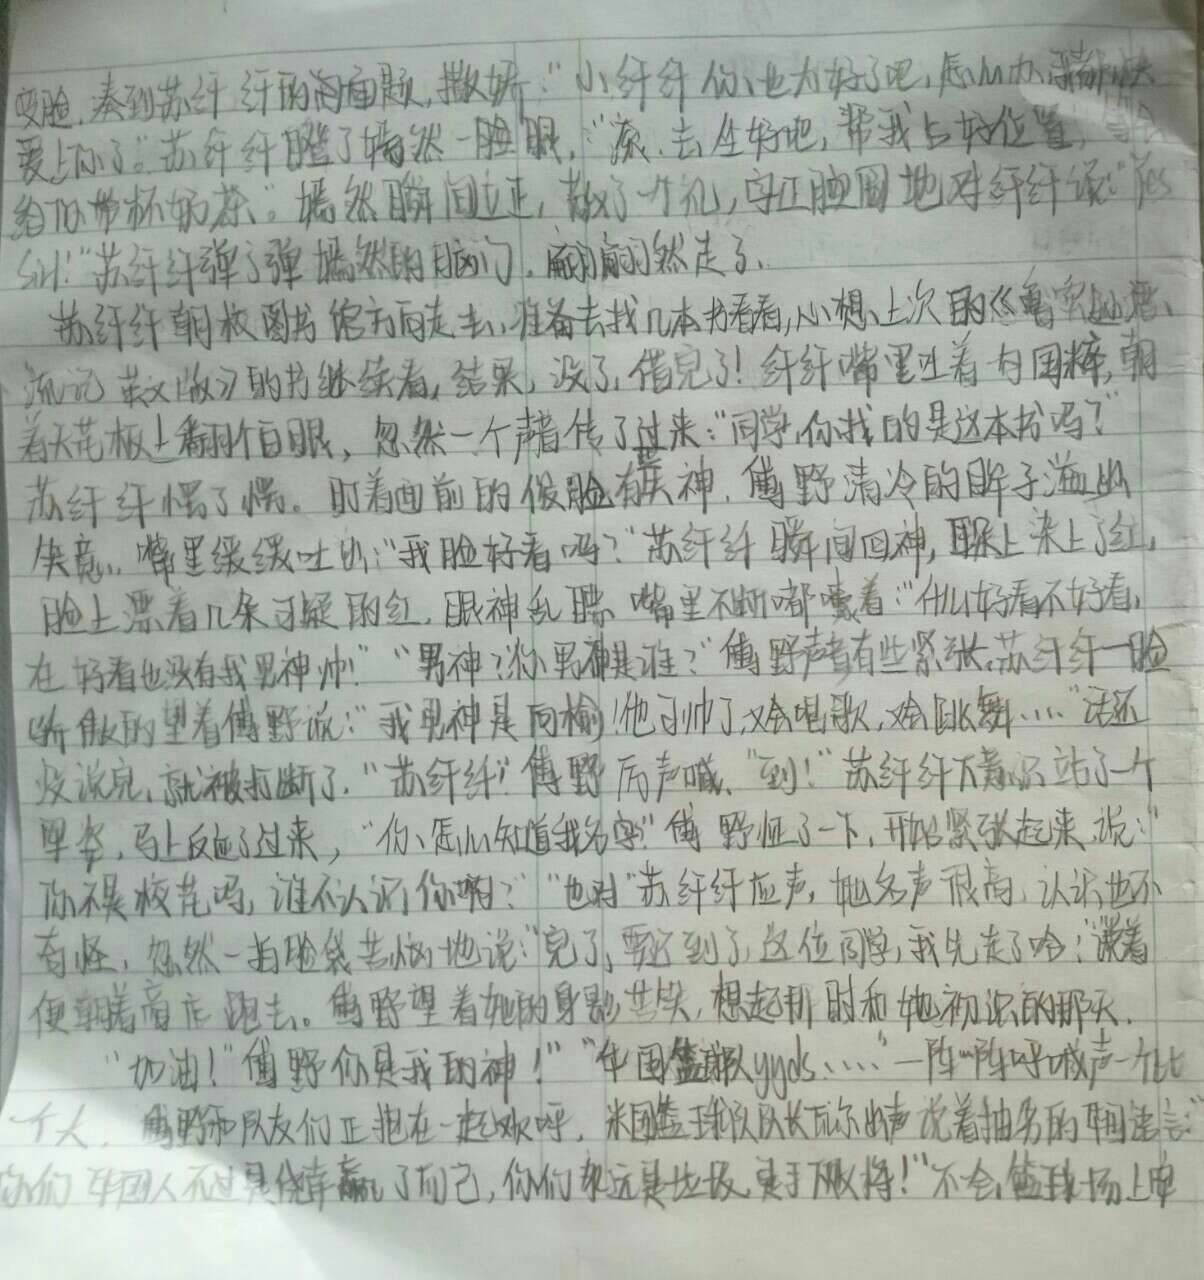 变脸，凑到苏纤纤的面前，撒娇：“小纤纤你也太好了吧，怎么办
爱上你了。”苏纤纤瞪了嫣然一眼，“滚，去坐好吧，帮我占好位置，
给你带杯奶茶。”嫣然瞬间立正，敬了个礼，字正腔圆地对纤纤说：“Yes
sir！”苏纤纤弹了弹嫣然的脑门，翩翩然走了。
苏纤纤朝校图书馆方向走去，准备去找几本书看看，心想上次的《鲁宾逊漂
流记英文版》的书继续看，结果，没了，借完了！纤纤嘴里吐着句国粹，朝
着天花板上翻个白眼，忽然一个声音传了过来：“同学，你找的是这本书吗？”
苏纤纤愣了愣。盯着面前的俊脸有些失神，傅野清冷的眸子溢出
失意，嘴里缓缓吐出：“我脸好看吗？”苏纤纤瞬间回神，耳朵上染上了红，
脸上漂着几朵可疑的红，眼神乱瞟，嘴里不断嘟囔着：“什么好看不好看，
在好看也没有我男神帅！”“男神？你男神是谁？”傅野声音有些紧张，苏纤纤一脸
骄傲的望着傅野说：“我男神是向榆！他可帅了，又会唱歌，又会跳舞……”话还
没说完，就被打断了，“苏纤纤！”傅野厉声喊，“到！”苏纤纤下意识站了一个
军姿，马上反应了过来，“你怎么知道我名字？”傅野怔了一下，开始紧张起来，说：“
你不是校花吗，谁不认识你啊？”“也对”苏纤纤应声，她名声很高，认识也不
奇怪，忽然一拍脑袋苦恼地说：“完了，要迟到了，这位同学，我先走了哈！”说着
便朝着商店跑去。傅野望着她的身影苦笑，想起那时和她初识的那天。
“加油！”“傅野你是我的神！”“华国篮球队yyds……”一阵一阵呼喊声一个比
一个大，傅野和队友们正抱在一起欢呼，米国篮球队队长瓦尔出声说着抽劣的中国语言：“
你们华国人不过是侥幸赢了而已，你们永远是垃圾，是手下败将！”不会，篮球场上